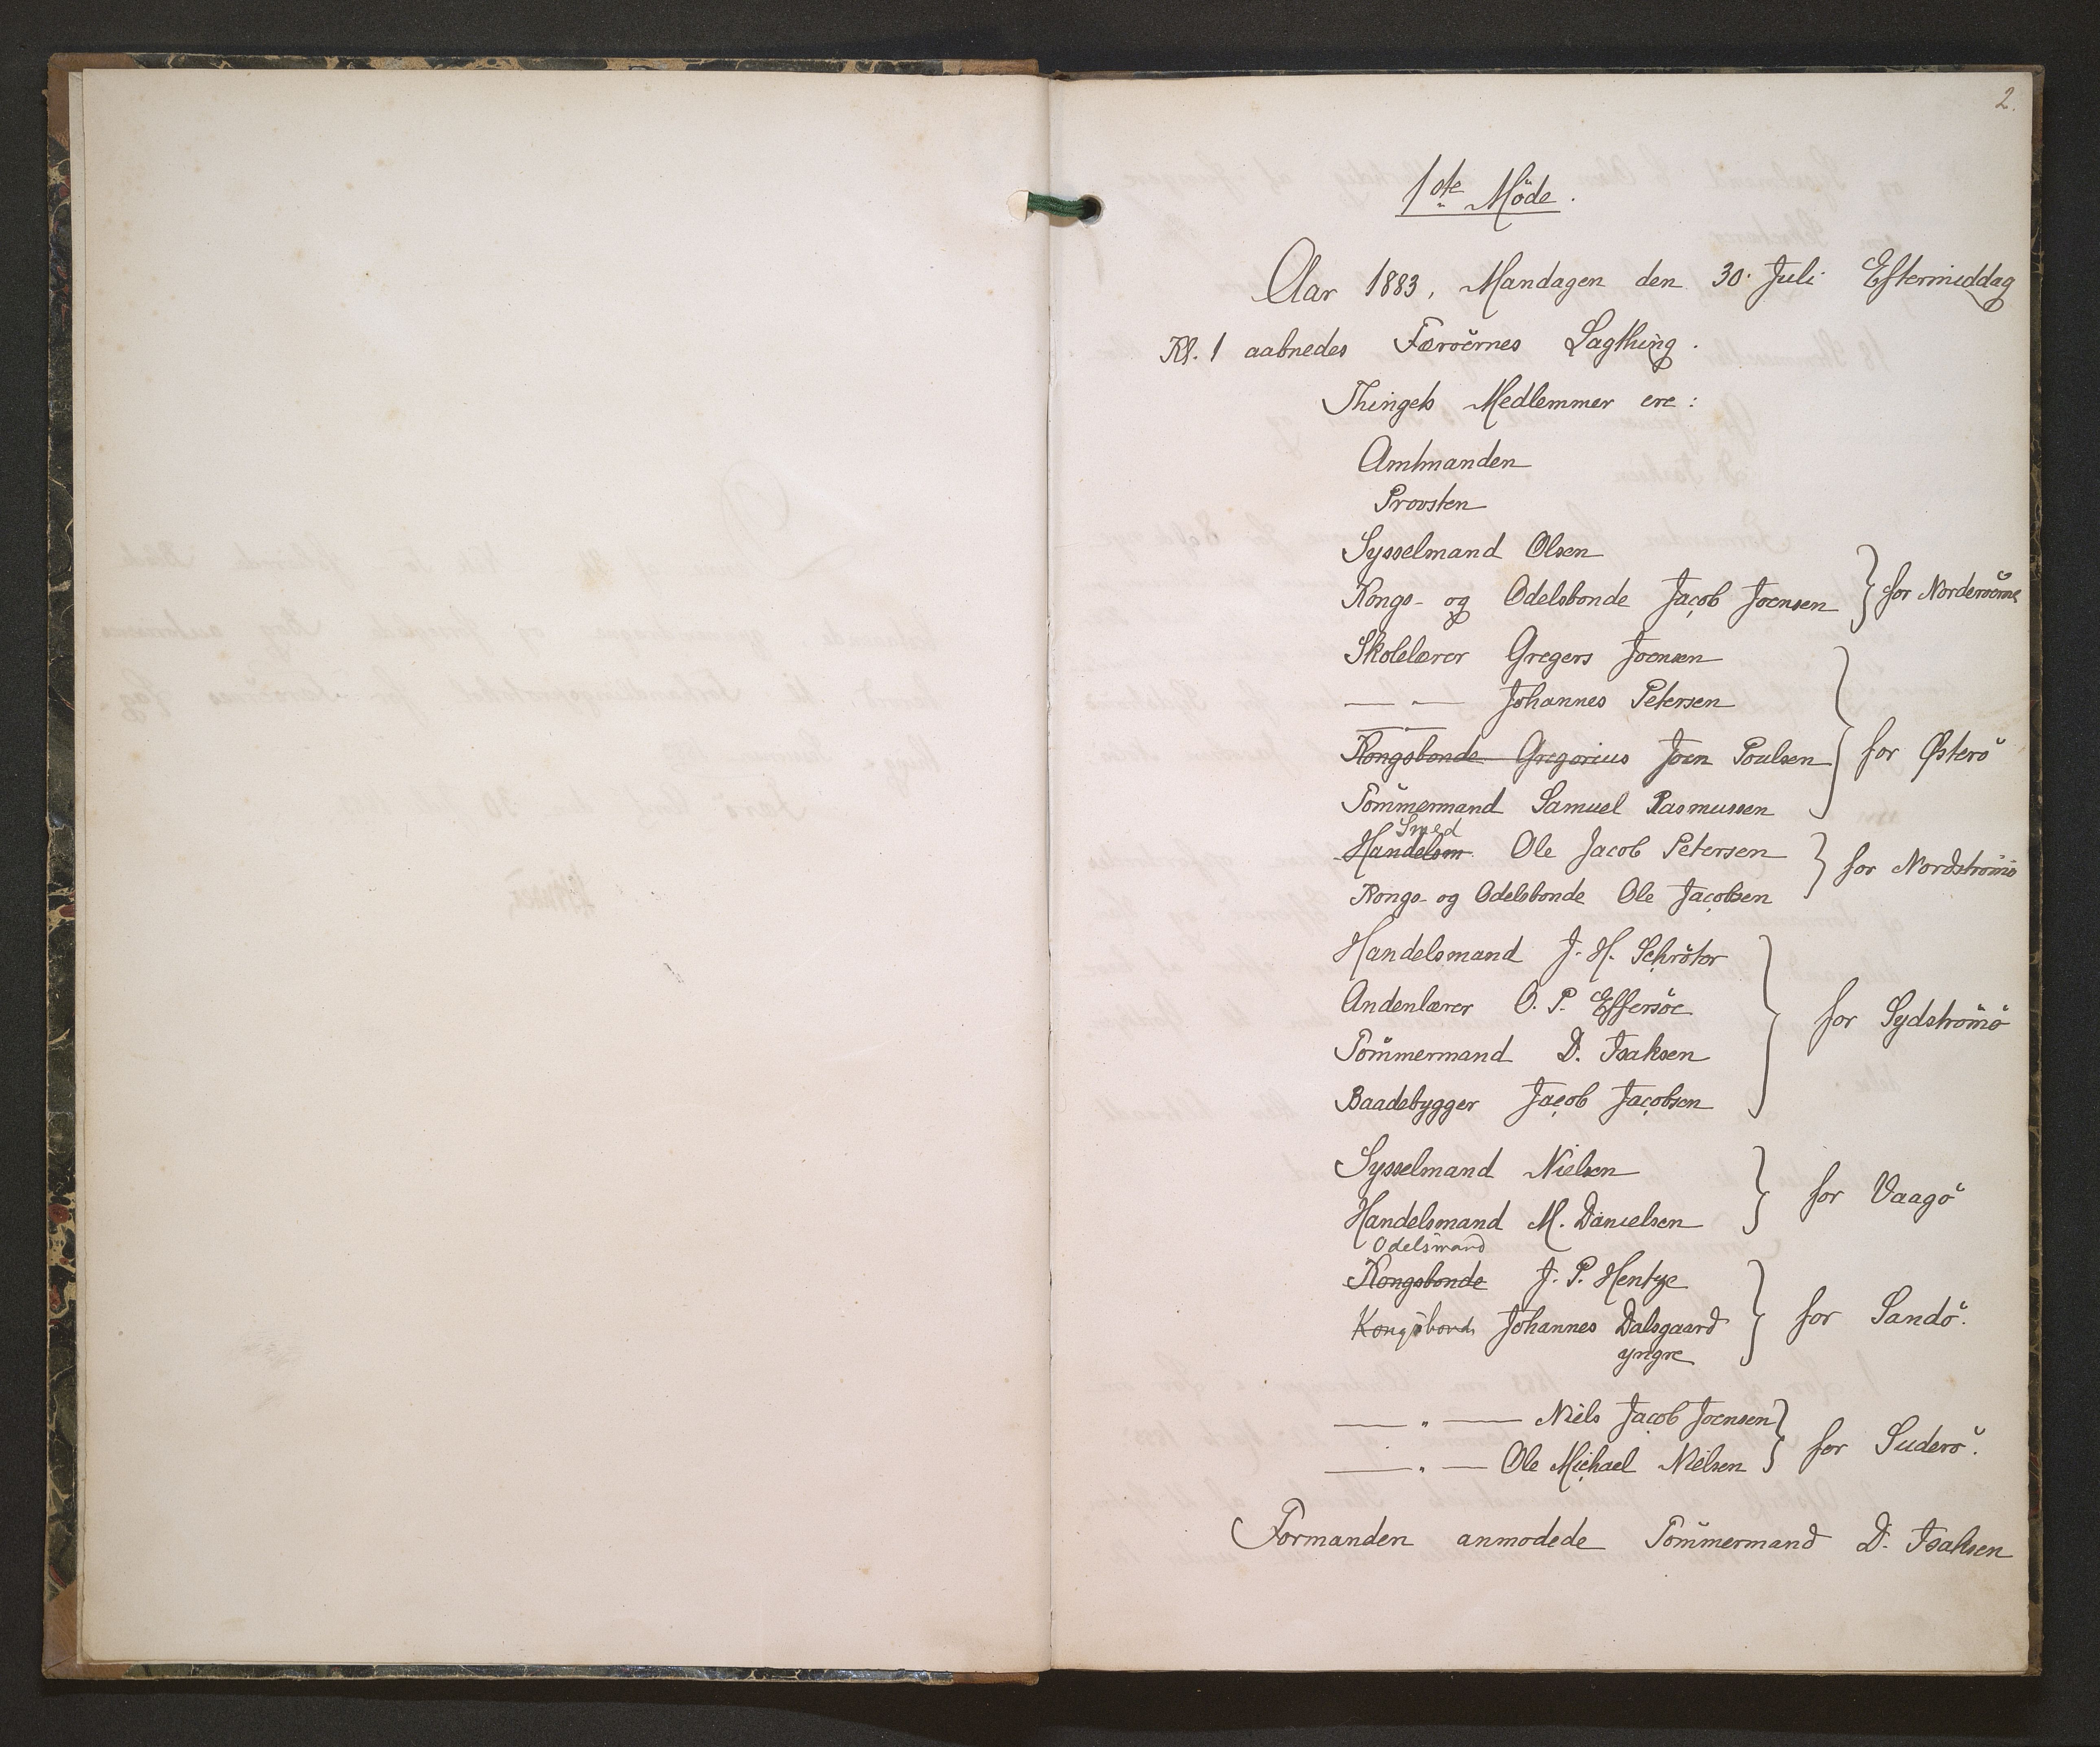 2.
1ste Möde.
Aar 1883, Mandagen den 30. Juli Eftermiddag
Kl. 1 aabnedes Færöernes Lagthing.
Thingets Medlemmer ere:
Amtmanden
Provsten
Sysselmand Olsen
Kongs- og Odelsbonde Jacob Joensen } for Norderöerne
Skolelærer Gregers Joensen
— — Johannes Petersen
Kongsbonde Gregorius Joen Poulsen } for Østerö
Tömmermand Samuel Rasmussen
Smed
Handelsm. Ole Jacob Petersen } for Nordströmö
Kongs- og Odelsbonde Ole Jacobsen
Handelsmand J. H. Schröter
Andenlærer O. P. Effersöe } for Sydströmö
Tömmermand D. Isaksen
Baadebygger Jacob Jacobsen
Sysselmand Nielsen } for Vaagö
Handelsmand M. Danielsen
Odelsmand
Kongsbonde J. P. Hentze
Kongsbonde Johannes Dalsgaard } for Sandö.
yngre
— " — Niels Jacob Joensen } for Suderö.
— " — Ole Michael Nielsen
Formanden anmodede Tömmermand D. Isaksen